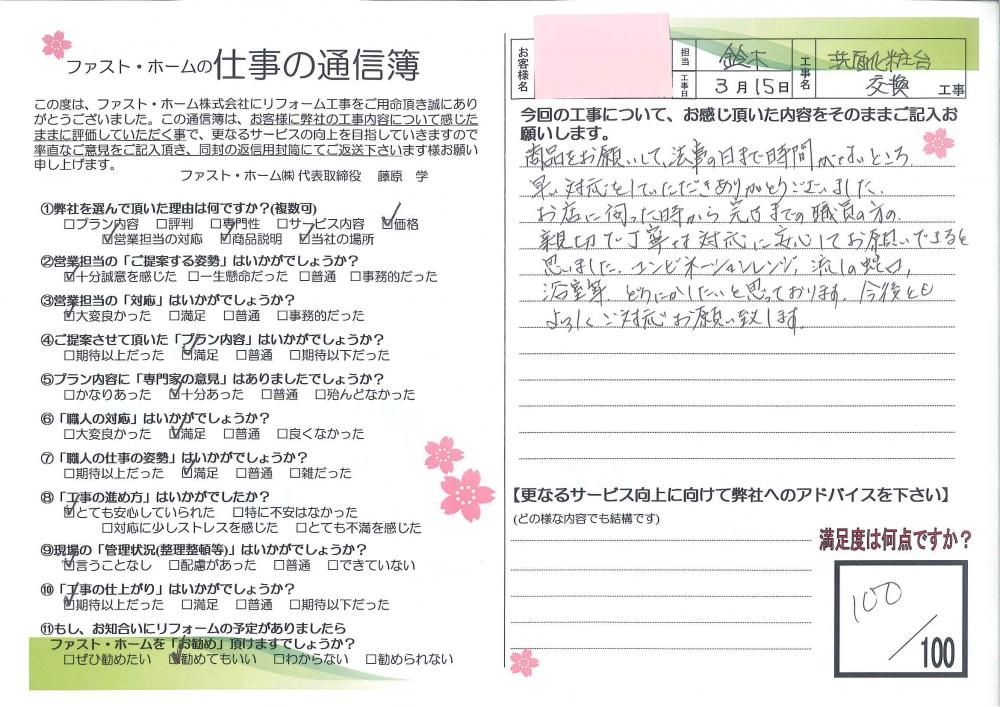 ファスト・ホームの仕事の通信簿
この度は、ファスト・ホーム株式会社にリフォーム工事をご用命頂き誠にあり
がとうございました。この通信簿は、お客様に弊社の工事内容について感じた
ままに評価していただく事で、更なるサービスの向上を目指していきますので
率直なご意見をご記入頂き、同封の返信用封筒にてご返送下さいます様お願い
申し上げます。
ファスト・ホーム㈱ 代表取締役 藤原 学
①弊社を選んで頂いた理由は何ですか？(複数可)
□プラン内容 □評判 □専門性 □サービス内容 ☑価格
☑営業担当の対応 ☑商品説明 ☑当社の場所
②営業担当の「ご提案する姿勢」はいかがでしょうか？
☑十分誠意を感じた □一生懸命だった □普通 □事務的だった
③営業担当の「対応」はいかがでしょうか？
☑大変良かった □満足 □普通 □事務的だった
④ご提案させて頂いた「プラン内容」はいかがでしょうか？
□期待以上だった ☑満足 □普通 □期待以下だった
⑤プラン内容に「専門家の意見」はありましたでしょうか？
□かなりあった ☑十分あった □普通 □殆んどなかった
⑥「職人の対応」はいかがでしょうか？
□大変良かった ☑満足 □普通 □良くなかった
⑦「職人の仕事の姿勢」はいかがでしょうか？
□期待以上だった ☑満足 □普通 □雑だった
⑧「工事の進め方」はいかがでしたか？
☑とても安心していられた □特に不安はなかった
□対応に少しストレスを感じた □とても不満を感じた
⑨現場の「管理状況(整理整頓等)」はいかがでしょうか？
☑言うことなし □配慮があった □普通 □できていない
⑩「工事の仕上がり」はいかがでしょうか？
☑期待以上だった □満足 □普通 □期待以下だった
⑪もし、お知合いにリフォームの予定がありましたら
ファスト・ホームを「お勧め」頂けますでしょうか？
□ぜひ勧めたい ☑勧めてもいい □わからない □勧められない
お客様名
担当 鈴木
工事日 3月15日
工事名 洗面化粧台
交換 工事
今回の工事について、お感じ頂いた内容をそのままご記入お
願いします。
商品をお願いして、法事の日まで時間がないところ
早い対応をしていただきありがとうございました。
お店に伺った時から完了までの職員の方の、
親切で丁寧な対応に安心してお願いできると
思いました。コンビネーションレンジ、流しの蛇口、
浴室等、どうにかしたいと思っております。今後とも
よろしくご対応お願い致します。
【更なるサービス向上に向けて弊社へのアドバイスを下さい】
(どの様な内容でも結構です)
満足度は何点ですか？
100
／100